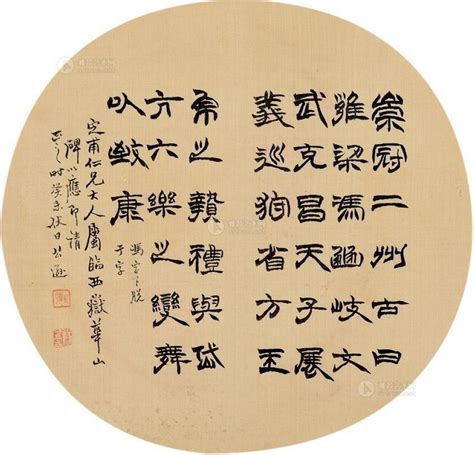 崇冠二州古曰
雍梁馮豳岐文
武克昌天子展
義巡狩省方玉
帛之贄禮與岱
亢六樂之變舞
以致康
馮字下脱
于字
定甫仁兄大人屬臨西嶽華山
碑以應即請
正之时癸未伏日